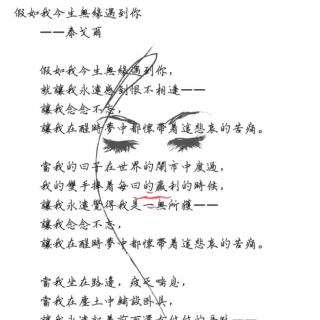 假如我今生無緣遇到你
——泰戈爾
假如我今生無緣遇到你，
就讓我永遠感到恨不相逢——
讓我念念不忘，
讓我在醒時夢中都懷帶着這悲哀的苦痛。
當我的日子在世界的鬧市中度過，
我的雙手捧着每日的贏利的時候，
讓我永遠覺得我是一無所獲——
讓我念念不忘，
讓我在醒時夢中都懷帶着這悲哀的苦痛。
當我坐在路邊，疲乏喘息，
當我在塵土中鋪設臥具，